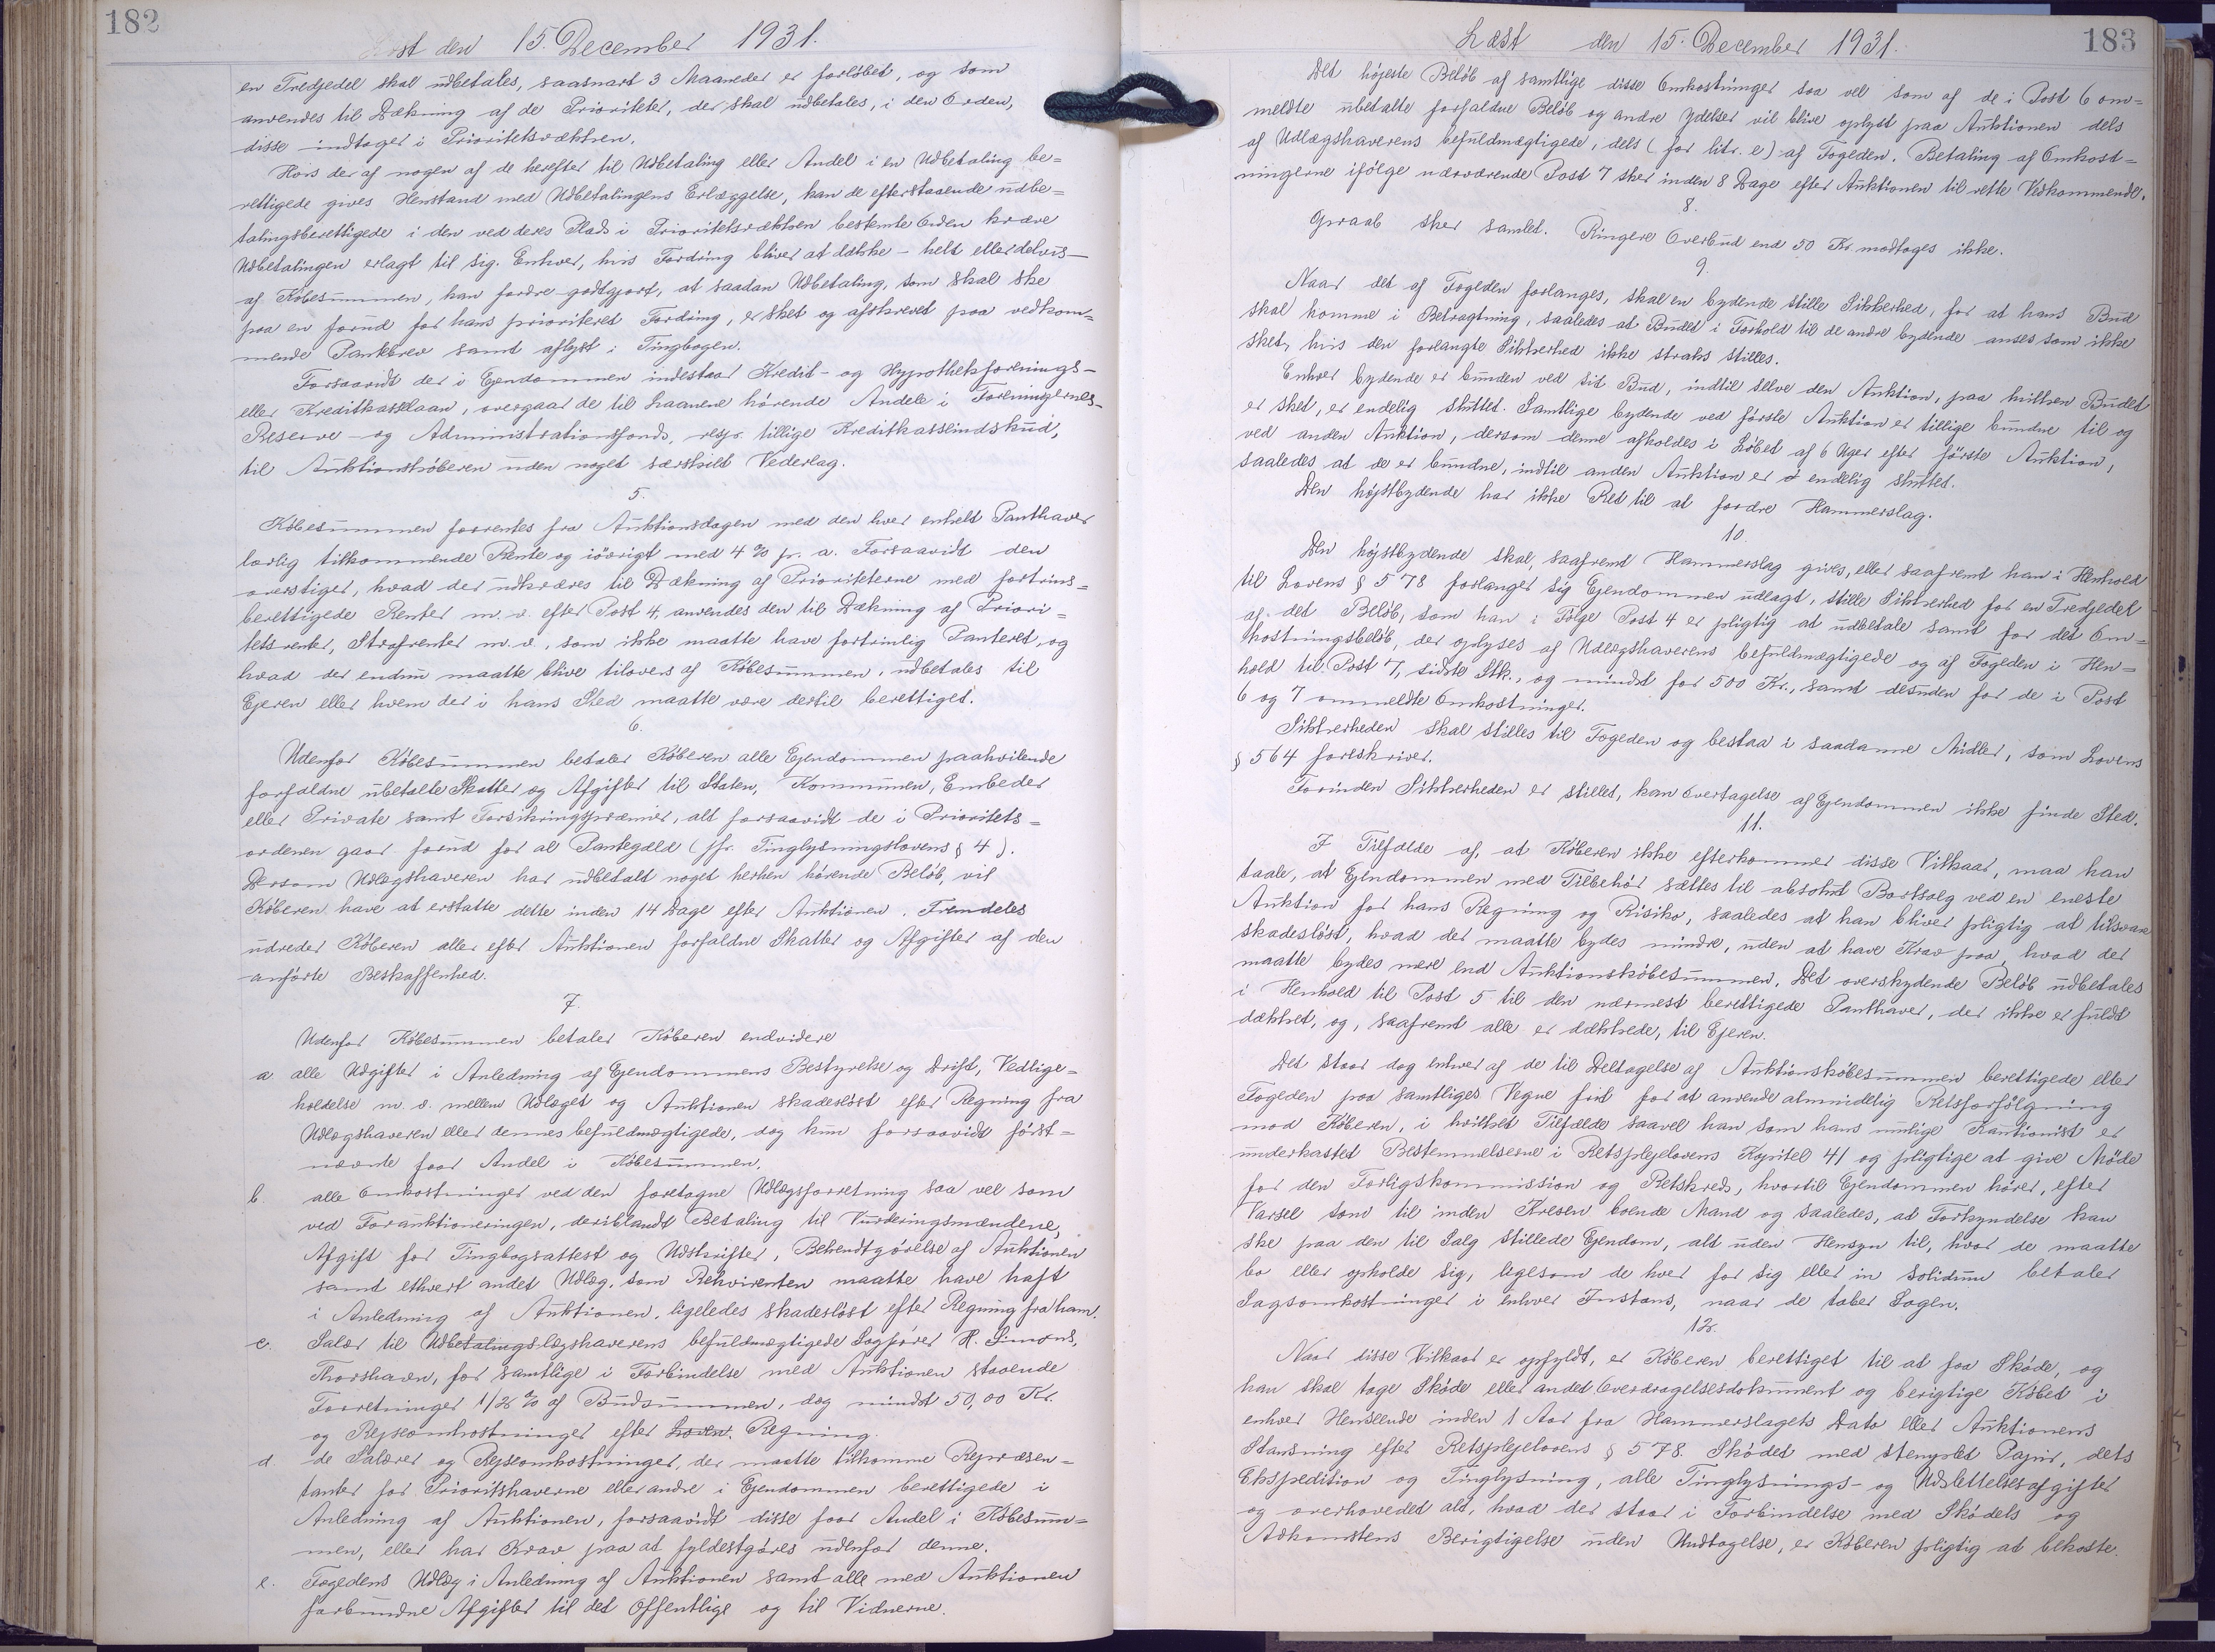 182
Læst den 15. December 1931.
en Tredjedel skal udbetales, saasnart 3 Maaneder er forløbet, og som
anvendes til Dækning af de Prioriteter, der skal udbetales, i den Orden,
disse indtager i Prioritetsrækken.
Hvis der af nogen af de herefter til Udbetaling eller Andel i en Udbetaling be=
rettigede gives Henstand med Udbetalingens Erlæggelse, kan de efterstaaende udbe=
talingsberettigede i den ved deres Plads i Prioritetsrækken bestemte Orden kræve
Udbetalingen erlagt til sig. Enhver, hvis Fordring bliver at dække - helt eller delvis -
af Købesummen, kan fordre godtgjort, at saadan Udbetaling, som skal ske
paa en forud for hans prioriteret Fordring, er sket og afskrevet paa vedkom=
mende Pantebrev samt aflyst i Tingbogen.
Forsaavidt der i Ejendommen indestaar Kredit- og Hypothekforenings-
eller Kreditkasselaan, overgaar de til Laanene hørende Andele i Foreningernes-
Reserve- og Administrationsfonds, resp. tillige Kreditkasseindskud,
til Auktionskøberen uden noget særskilt Vederlag.
5.
Købesummen forrentes fra Auktionsdagen med den hver enkelt Panthaver
lovlig tilkommende Rente og iøvrigt med 4 % p. a. Forsaavidt den
overstiger, hvad der udkræves til Dækning af Prioriteterne med fortrins=
berettigede Renter m. v. efter Post 4, anvendes den til Dækning af Priori=
tetsrenter, Strafrenter m. v., som ikke maatte have fortrinlig Panteret, og
hvad der endnu maatte blive tilovers af Købesummen, udbetales til
Ejeren eller hvem der i hans Sted maatte være dertil berettiget.
6.
Udenfor Købesummen betaler Køberen alle Ejendommen paahvilende
forfaldne ubetalte Skatter og Afgifter til Staten, Kommunen, Embeder
eller Private samt Forsikringspræmier, alt forsaavidt de i Prioritets=
ordenen gaar forud for al Pantegæld (jfr. Tinglysningslovens § 4).
Dersom Udlægshaveren har udbetalt noget herhen hørende Beløb, vil
Køberen have at erstatte dette inden 14 Dage efter Auktionen. Fremdeles
udreder Køberen alle efter Auktionen forfaldne Skatter og Afgifter af den
anførte Beskaffenhed.
7.
Udenfor Købesummen betaler Køberen endvidere
a. alle Udgifter i Anledning af Ejendommens Bestyrelse og Drift, Vedlige=
holdelse m. v. mellem Udlæget og Auktionen skadesløst efter Regning fra
Udlægshaveren eller dennes befuldmægtigede, dog kun forsaavidt først=
nævnte faar Andel i Købesummen.
b. alle Omkostninger ved den foretagne Udlægsforretning saa vel som
ved Forauktioneringen, deriblandt Betaling til Vurderingsmændene,
Afgift for Tingbogsattest og Udskrifter, Bekendtgørelse af Auktionen
samt ethvert andet Udlæg, som Rekvirenten maatte have haft
i Anledning af Auktionen, ligeledes skadesløst efter Regning fra ham.
c. Salær til Udbetalingslægshaverens befuldmægtigede Sagfører H. Simons,
Thorshavn, for samtlige i Forbindelse med Auktionen staaende
Forretninger 1/2 % af Budsummen, dog mindst 50,00 Kr.
og Rejseomkostninger efter Loven. Regning.
d. de Salærer og Rejseomkostninger, der maatte tilkomme Repræsen=
tanter for Prioritshaverne eller andre i Ejendommen berettigede i
Anledning af Auktionen, forsaavidt disse faar Andel i Købesum=
men, eller har Krav paa at fyldestgøres udenfor denne.
e. Fogedens Udlæg i Anledning af Auktionen samt alle med Auktionen
forbundne Afgifter til det Offentlige og til Vidnerne.
Læst den 15. December 1931.
183
Det højeste Beløb af samtlige disse Omkostninger saa vel som af de i Post 6 om=
meldte ubetalte forfaldne Beløb og andre Ydelser vil blive oplyst paa Auktionen dels
af Udlægshaverens befuldmægtigede, dels (for litr. e) af Fogeden. Betaling af Omkost=
ningerne ifølge nærværende Post 7 sker inden 8 Dage efter Auktionen til rette Vedkommende.
8.
Opraab sker samlet. Ringere Overbud end 50 Kr. modtages ikke.
9.
Naar det af Fogeden forlanges, skal en bydende stille Sikkerhed, for at hans Bud
skal komme i Betragtning, saaledes at Budet i Forhold til de andre bydende anses som ikke
sket, hvis den forlangte Sikkerhed ikke straks stilles.
Enhver bydende er bunden ved sit Bud, indtil selve den Auktion, paa hvilken Budet
er sket, er endelig sluttet. Samtlige bydende ved første Auktion er tillige bundne til og
ved anden Auktion, dersom denne afholdes i Løbet af 6 Uger efter første Auktion,
saaledes at de er bundne, indtil anden Auktion er endelig sluttet.
Den højstbydende har ikke Ret til at fordre Hammerslag.
10.
Den højstbydende skal, saafremt Hammerslag gives, eller saafremt han i Henhold
til Lovens § 578 forlanger sig Ejendommen udlagt, stille Sikkerhed for en Tredjedel
af det Beløb, som han i Følge Post 4 er pligtig at udbetale samt for det Om=
kostningsbeløb, der oplyses af Udlægshaverens befuldmægtigede og af Fogeden i Hen=
hold til Post 7, sidste Stk., og mindst for 500 Kr., samt desuden for de i Post
6 og 7 ommeldte Omkostninger.
Sikkerheden skal stilles til Fogeden og bestaa i saadanne Midler, som Lovens
§ 564 forlskriver.
Forinden Sikkerheden er stillet, kan Overtagelse af Ejendommen ikke finde Sted.
11.
I Tilfælde af, at Køberen ikke efterkommer disse Vilkaar, maa han
taale, at Ejendommen med Tilbehør sættes til absolut Bortsalg ved en eneste
Auktion for hans Regning og Risiko, saaledes at han bliver pligtig at tilsvare
skadesløst, hvad der maatte bydes mindre, uden at have Krav paa, hvad der
maatte bydes mere end Auktionskøbesummen. Det overskydende Beløb udbetales
i Henhold til Post 5 til den nærmest berettigede Panthaver, der ikke er fuldt
dækket, og, saafremt alle er dækkede, til Ejeren.
Det staar dog enhver af de til Deltagelse af Auktionskøbesummen berettigede eller
Fogeden paa samtliges Vegne frit for at anvende almindelig Retsforfølgning
mod Køberen, i hvilket Tilfælde saavel han som hans mulige Kautionist er
underkastet Bestemmelserne i Retsplejelovens Kapitel 41 og pligtige at give Møde
for den Forligskommission og Retskreds, hvortil Ejendommen hører, efter
Varsel som til inden Kresen boende Mand og saaledes, at Forkyndelse kan
ske paa den til Salg stillede Ejendom, alt uden Hensyn til, hvor de maatte
bo eller opholde sig, ligesom de hver for sig eller in solidum betaler
Sagsomkostninger i enhver Instans, naar de taber Sagen.
12.
Naar disse Vilkaar er opfyldt, er Køberen berettiget til at faa Skøde, og
han skal tage Skøde eller andet Overdragelsesdokument og berigtige Købet i
enhver Henseende inden 1 Aar fra Hammerslagets Dato eller Auktionens
Slutning efter Retsplejelovens § 578. Skødet med stemplet Papir, dets
Ekspedition og Tinglysning, alle Tinglysnings- og Udslettelsesafgifter
og overhovedet alt, hvad der staar i Forbindelse med Skødets og
Adkomstens Berigtigelse uden Undtagelse, er Køberen pligtig at bekoste.